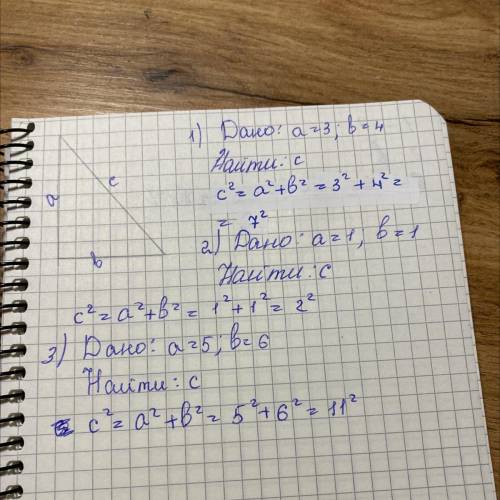 a
c
b
1) Дано: a=3; b=4
Найти: c
c²=a²+b²=3²+4²=
= 7²
2) Дано: a=1, b=1
Найти: c
c²=a²+b²=1²+1²=2²
3) Дано: a=5; b=6
Найти: c
c²=a²+b²=5²+6²=11²